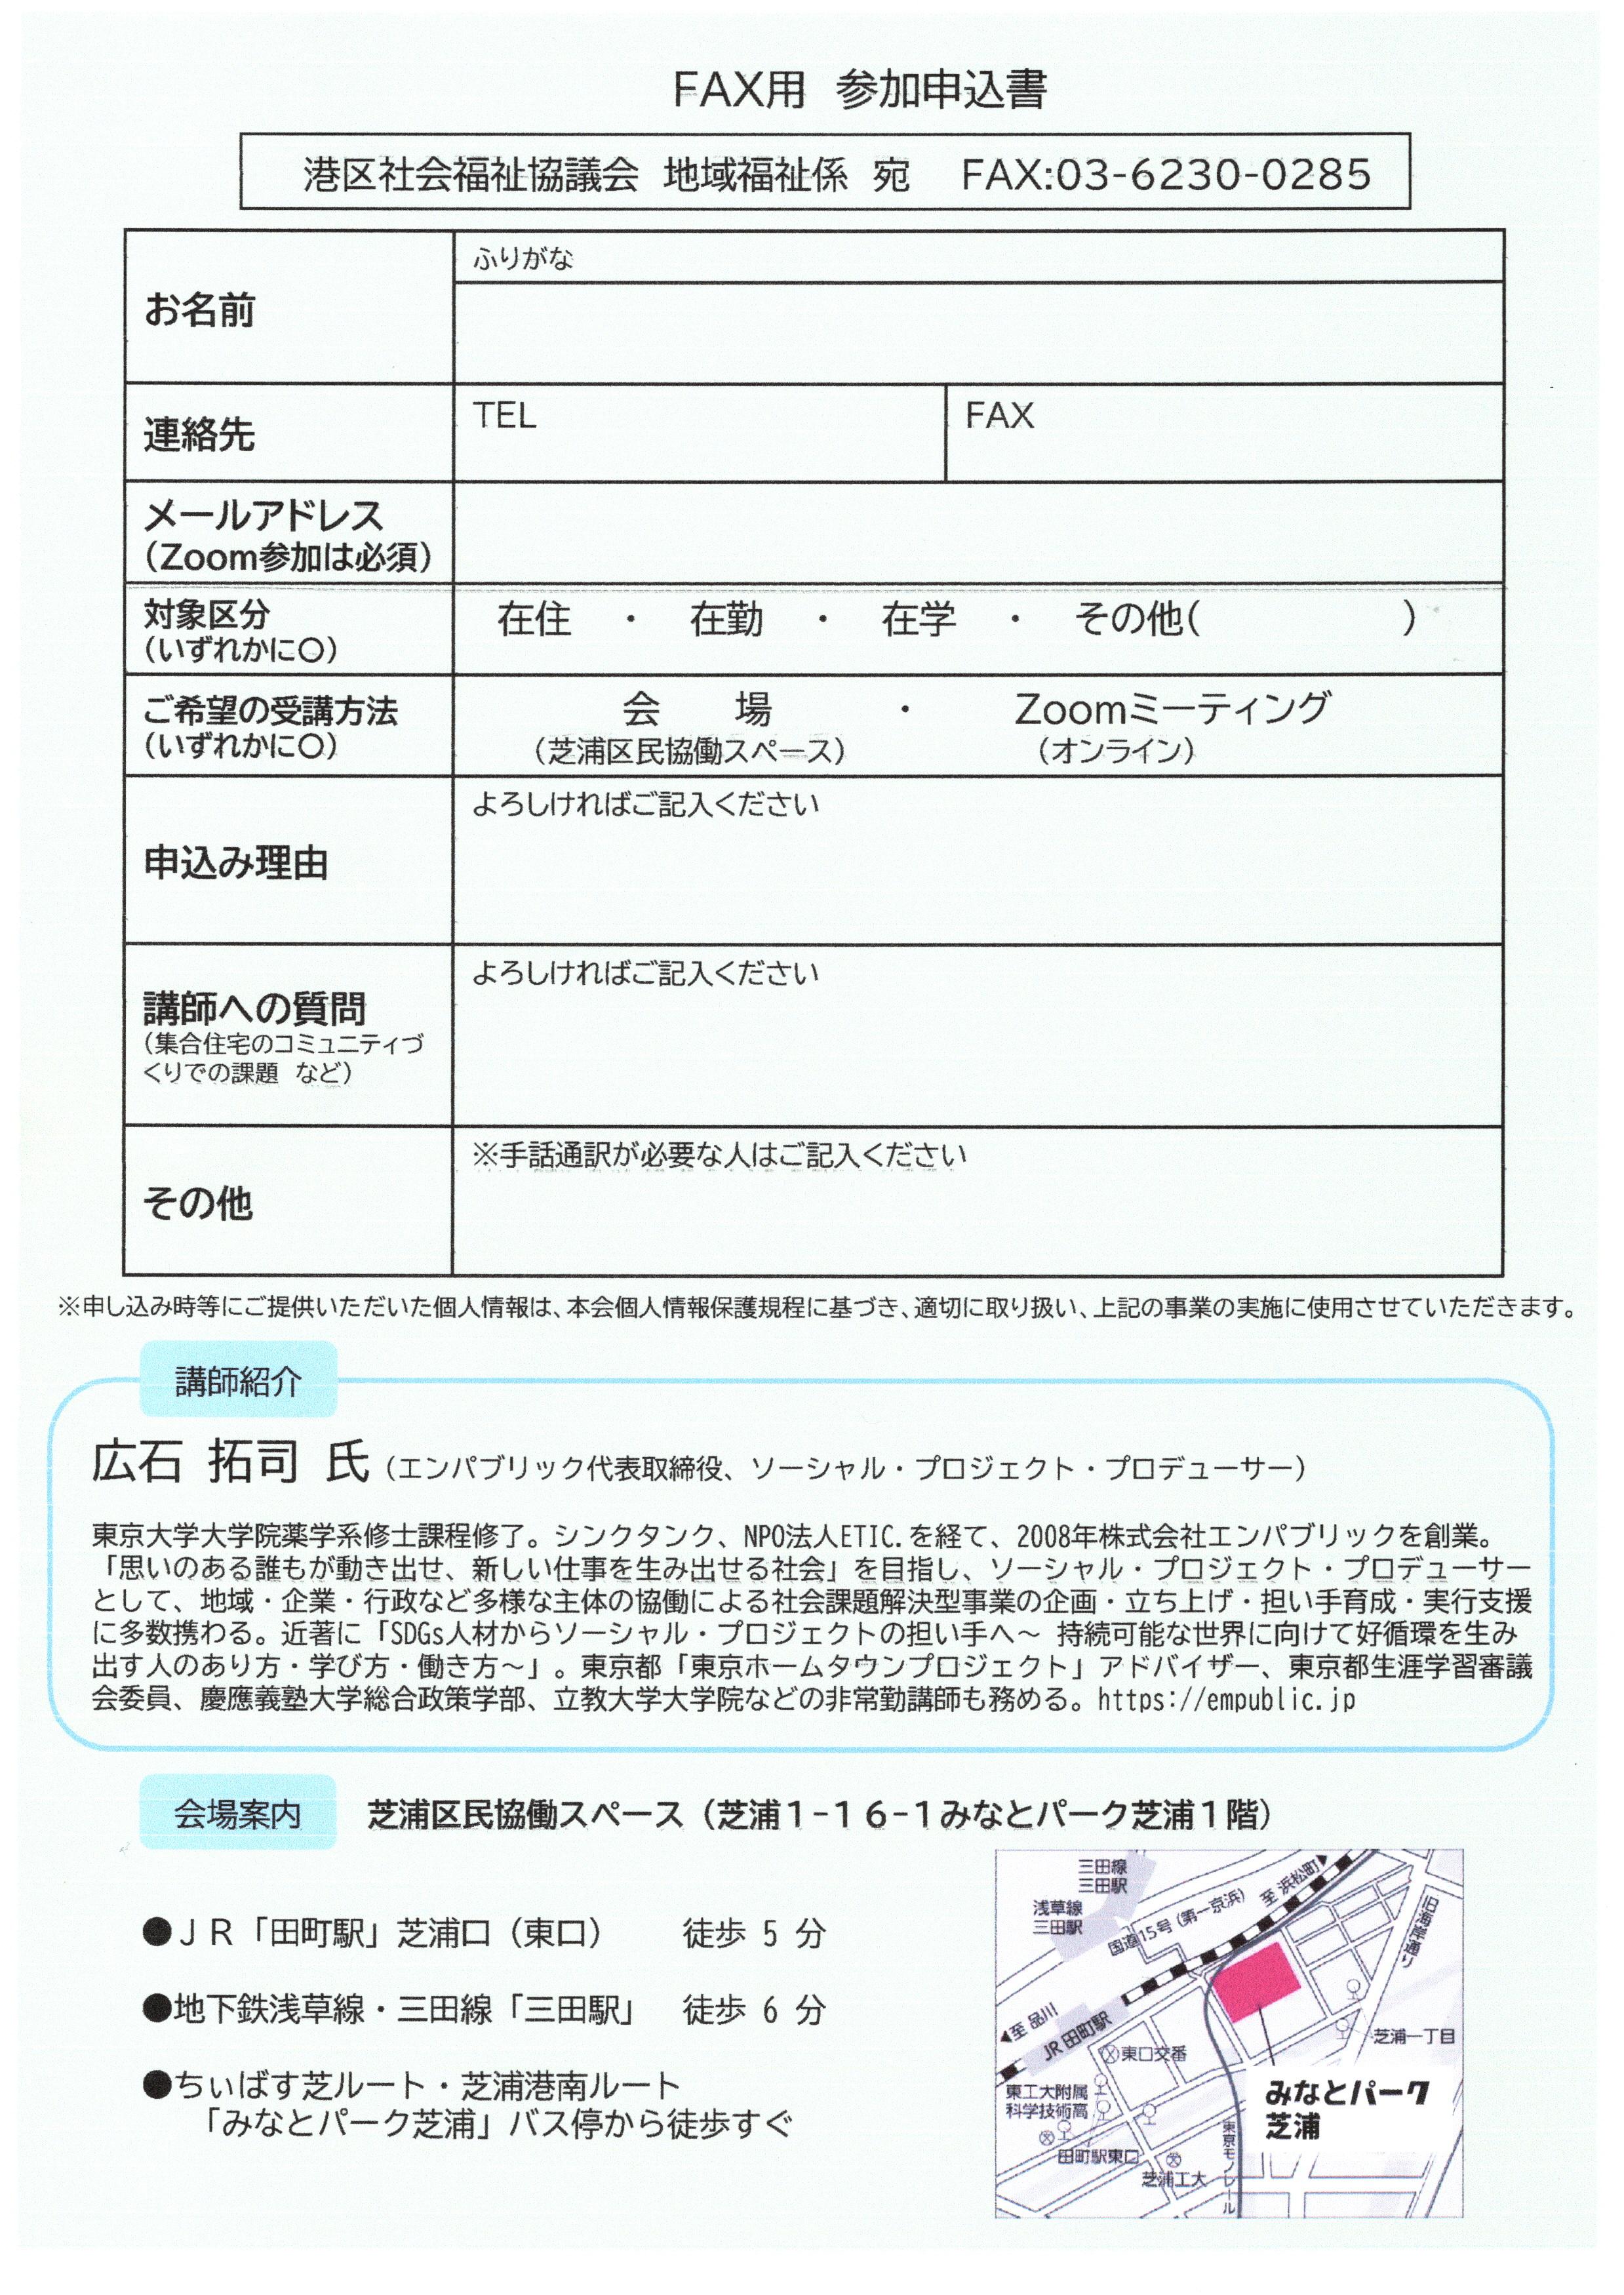 FAX用 参加申込書
港区社会福祉協議会 地域福祉係 宛 FAX:03-6230-0285
お名前
ふりがな
連絡先
TEL
FAX
メールアドレス
(Zoom参加は必須)
対象区分
(いずれかに〇)
在住 ・ 在勤 ・ 在学 ・ その他( )
ご希望の受講方法
(いずれかに〇)
会 場 ・ Zoomミーティング
(芝浦区民協働スペース) (オンライン)
申込み理由
よろしければご記入ください
講師への質問
(集合住宅のコミュニティづ
くりでの課題 など)
よろしければご記入ください
その他
※手話通訳が必要な人はご記入ください
※申し込み時等にご提供いただいた個人情報は、本会個人情報保護規程に基づき、適切に取り扱い、上記の事業の実施に使用させていただきます。
講師紹介
広石 拓司 氏(エンパブリック代表取締役、ソーシャル・プロジェクト・プロデューサー)
東京大学大学院薬学系修士課程修了。シンクタンク、NPO法人ETIC.を経て、2008年株式会社エンパブリックを創業。
「思いのある誰もが動き出せ、新しい仕事を生み出せる社会」を目指し、ソーシャル・プロジェクト・プロデューサー
として、地域・企業・行政など多様な主体の協働による社会課題解決型事業の企画・立ち上げ・担い手育成・実行支援
に多数携わる。近著に「SDGs人材からソーシャル・プロジェクトの担い手へ～ 持続可能な世界に向けて好循環を生み
出す人のあり方・学び方・働き方～」。東京都「東京ホームタウンプロジェクト」アドバイザー、東京都生涯学習審議
会委員、慶應義塾大学総合政策学部、立教大学大学院などの非常勤講師も務める。https://empublic.jp
会場案内
芝浦区民協働スペース(芝浦1-16-1みなとパーク芝浦1階)
●JR「田町駅」芝浦口(東口) 徒歩 5 分
●地下鉄浅草線・三田線「三田駅」 徒歩 6 分
●ちぃばす芝ルート・芝浦港南ルート
「みなとパーク芝浦」バス停から徒歩すぐ
三田線
三田駅
浅草線
三田駅
国道15号(第一京浜)
至 浜松町
旧海岸通り
至 品川
JR 田町駅
東口交番
芝浦一丁目
東工大附属
科学技術高
みなとパーク
芝浦
田町駅東口
芝浦工大
東京モノレール